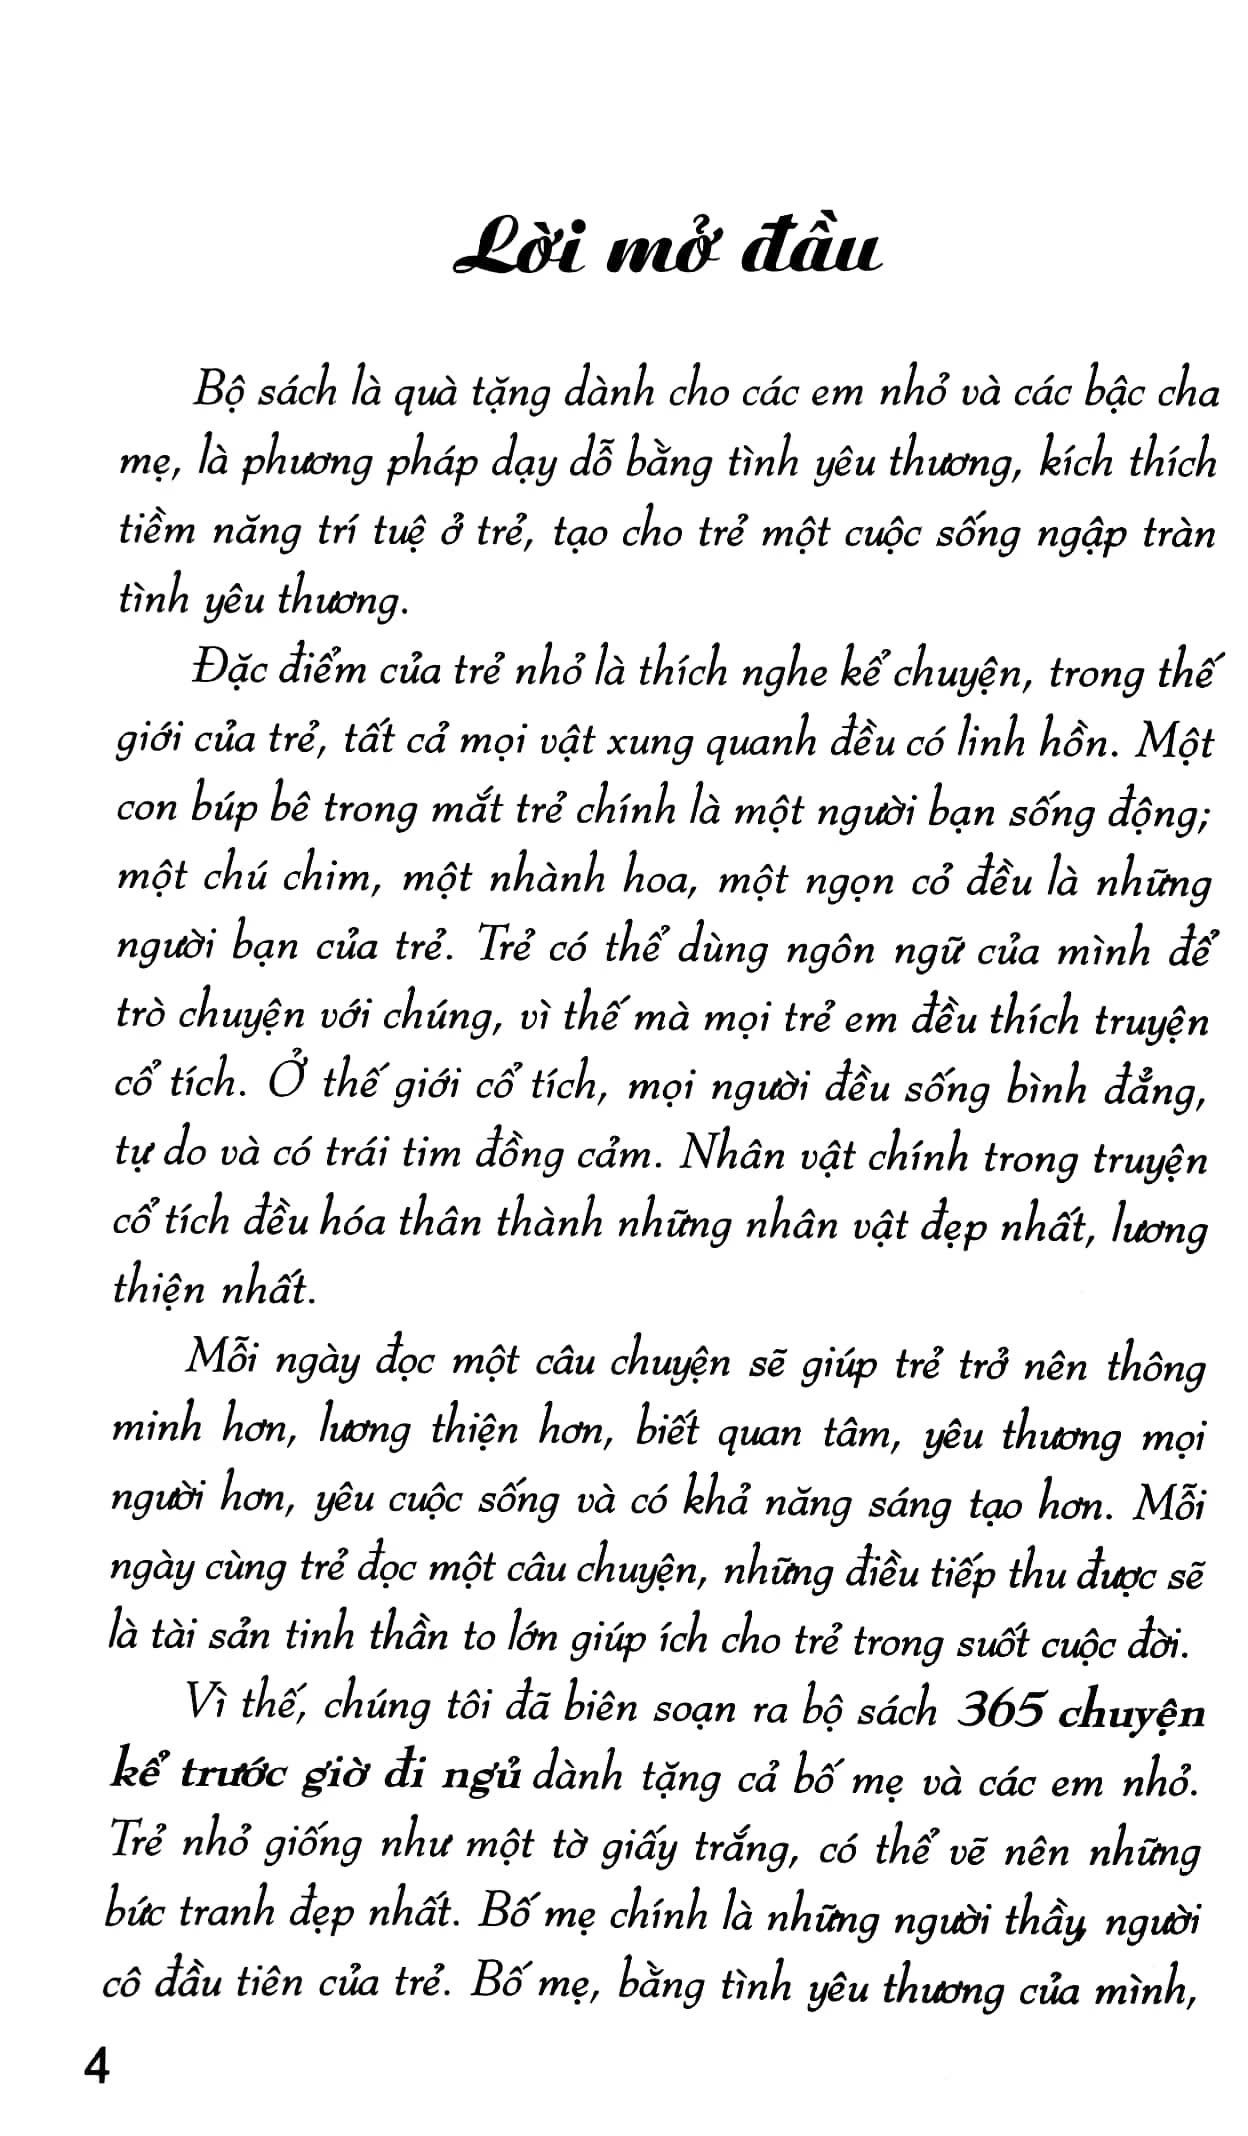 Lời mở đầu
Bộ sách là quà tặng dành cho các em nhỏ và các bậc cha
mẹ, là phương pháp dạy dỗ bằng tình yêu thương, kích thích
tiềm năng trí tuệ ở trẻ, tạo cho trẻ một cuộc sống ngập tràn
tình yêu thương.
Đặc điểm của trẻ nhỏ là thích nghe kể chuyện, trong thế
giới của trẻ, tất cả mọi vật xung quanh đều có linh hồn. Một
con búp bê trong mắt trẻ chính là một người bạn sống động;
một chú chim, một nhành hoa, một ngọn cỏ đều là những
người bạn của trẻ. Trẻ có thể dùng ngôn ngữ của mình để
trò chuyện với chúng, vì thế mà mọi trẻ em đều thích truyện
cổ tích. Ở thế giới cổ tích, mọi người đều sống bình đẳng,
tự do và có trái tim đồng cảm. Nhân vật chính trong truyện
cổ tích đều hóa thân thành những nhân vật đẹp nhất, lương
thiện nhất.
Mỗi ngày đọc một câu chuyện sẽ giúp trẻ trở nên thông
minh hơn, lương thiện hơn, biết quan tâm, yêu thương mọi
người hơn, yêu cuộc sống và có khả năng sáng tạo hơn. Mỗi
ngày cùng trẻ đọc một câu chuyện, những điều tiếp thu được sẽ
là tài sản tinh thần to lớn giúp ích cho trẻ trong suốt cuộc đời.
Vì thế, chúng tôi đã biên soạn ra bộ sách 365 chuyện
kể trước giờ đi ngủ dành tặng cả bố mẹ và các em nhỏ.
Trẻ nhỏ giống như một tờ giấy trắng, có thể vẽ nên những
bức tranh đẹp nhất. Bố mẹ chính là những người thầy, người
cô đầu tiên của trẻ. Bố mẹ, bằng tình yêu thương của mình,
4